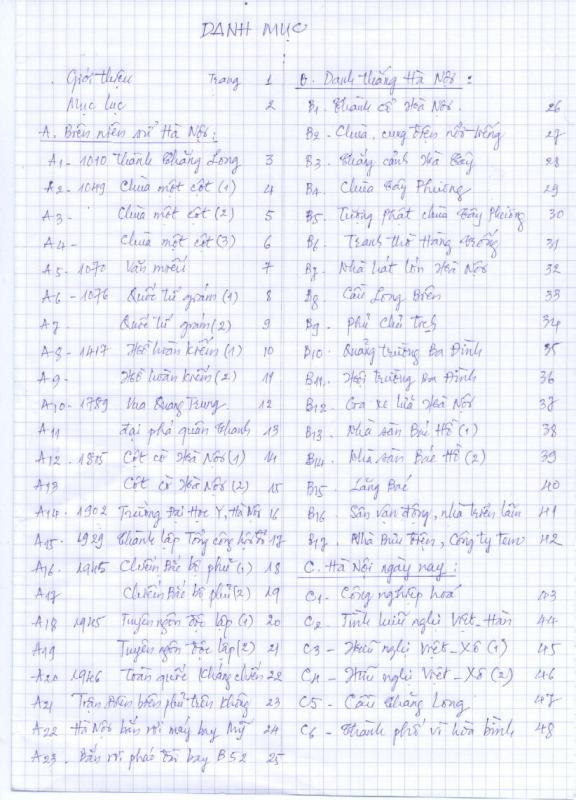 DANH MỤC
Giới thiệu Trang 1
Mục lục 2
A. Biên niên sử Hà Nội:
A1 - 1010 Thành Thăng Long 3
A2 - 1049 Chùa một cột (1) 4
A3 - Chùa một cột (2) 5
A4 - Chùa một cột (3) 6
A5 - 1070 Văn miếu 7
A6 - 1076 Quốc tử giám (1) 8
A7 - Quốc tử giám (2) 9
A8 - 1417 Hồ hoàn kiếm (1) 10
A9 - Hồ hoàn kiếm (2) 11
A10 - 1789 Vua Quang Trung 12
A11 Đại phá quân Thanh 13
A12 - 1805 Cột cờ Hà Nội (1) 14
A13 Cột cờ Hà Nội (2) 15
A14 - 1902 Trường Đại Học Y, Hà Nội 16
A15 - 1929 Thành lập Tổng công hội đỏ 17
A16 - 1945 Chiếm Bắc bộ phủ (1) 18
A17 Chiếm Bắc bộ phủ (2) 19
A18 1945 Tuyên ngôn độc lập (1) 20
A19 Tuyên ngôn độc lập (2) 21
A20 1946 Toàn quốc kháng chiến 22
A21 Trận Điện biên phủ trên không 23
A22 Hà Nội bắn rơi máy bay Mỹ 24
A23 - Bắn rơi pháo đài bay B52 25
B. Danh thắng Hà Nội:
B1 - Thành cổ Hà Nội. 26
B2 - Chùa, cung điện nổi tiếng 27
B3 - Thắng cảnh Hà Tây 28
B4 - Chùa Tây Phương 29
B5 - Tượng phật chùa Tây Phương 30
B6 - Tranh thờ Hàng Trống 31
B7 - Nhà hát lớn Hà Nội 32
B8 - Cầu Long Biên 33
B9 - Phủ Chủ tịch 34
B10 - Quảng trường Ba Đình 35
B11 - Hội trường Ba Đình 36
B12 - Ga xe lửa Hà Nội 37
B13 - Nhà sàn Bác Hồ (1) 38
B14 - Nhà sàn Bác Hồ (2) 39
B15 - Lăng Bác 40
B16 - Sân vận động, nhà triển lãm 41
B17 - Nhà Bưu Điện, Công ty tem 42
C. Hà Nội ngày nay:
C1 - Công nghiệp hoá 43
C2 - Tình hữu nghị Việt-Hàn 44
C3 - Hữu nghị Việt-Xô (1) 45
C4 - Hữu nghị Việt-Xô (2) 46
C5 - Cầu Thăng Long 47
C6 - Thành phố vì hòa bình 48